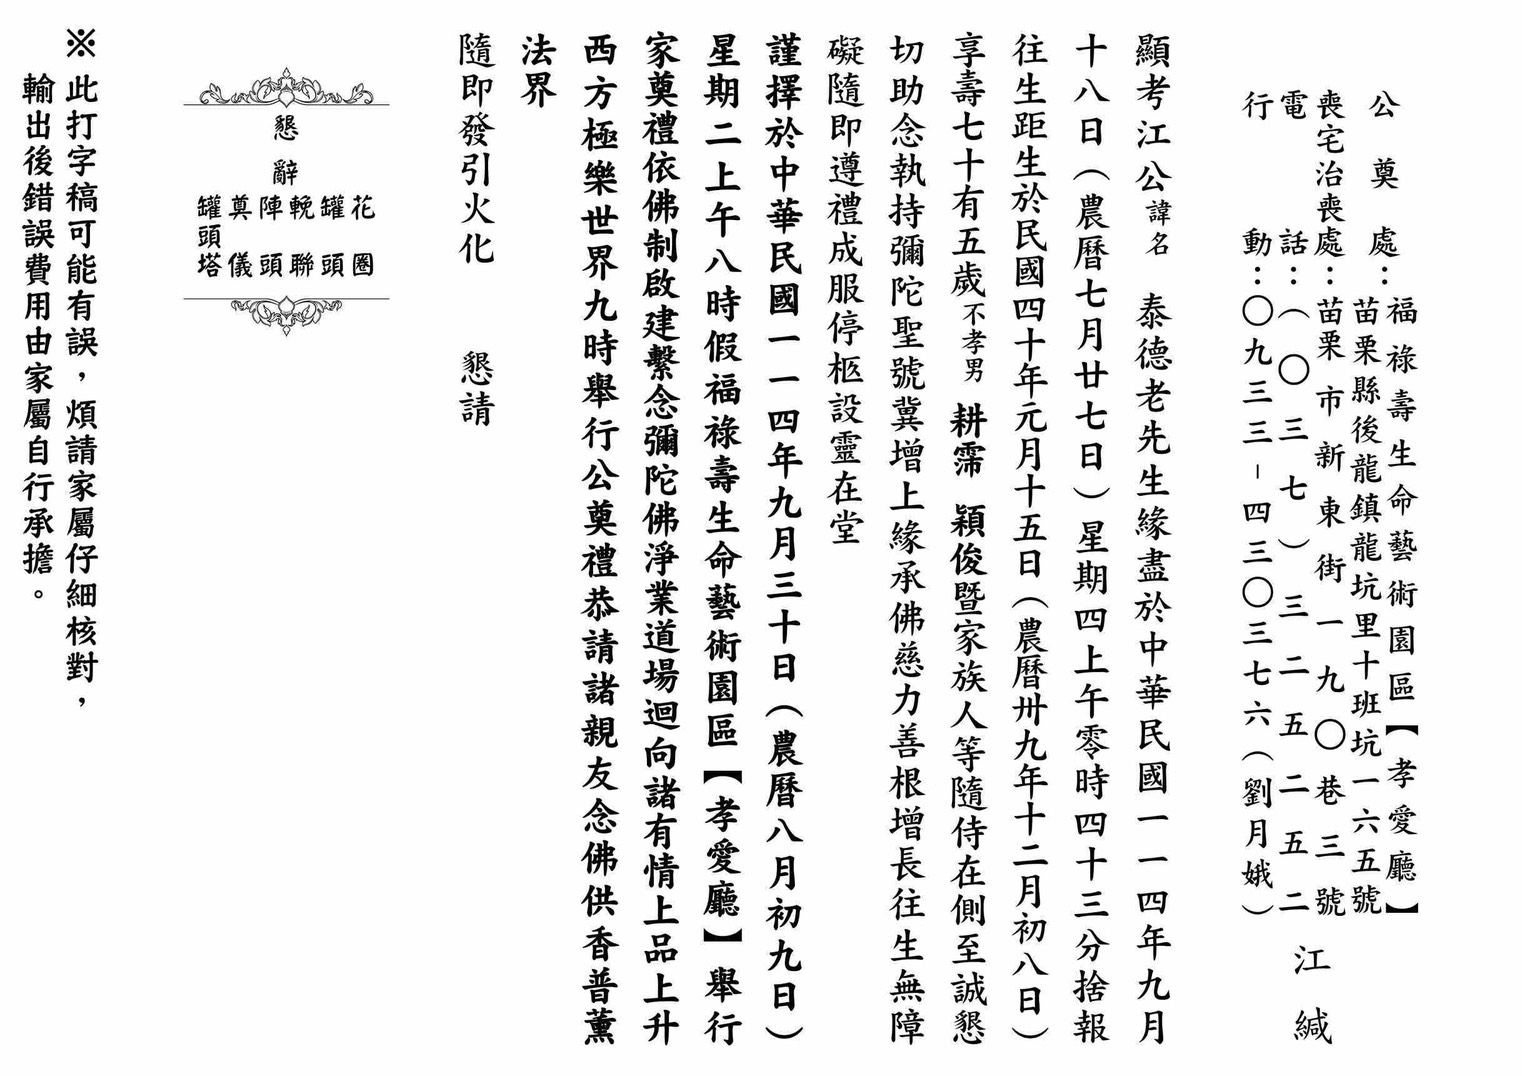 公奠處：福祿壽生命藝術園區【孝愛廳】
苗栗縣後龍鎮龍坑里十班坑一六五號
喪宅治喪處：苗栗市新東街一九〇巷三號
電話：（〇三七）三二五二五二
行動：〇九三三－四三〇三七六（劉月娥）
江緘
顯考江公諱名　泰德老先生緣盡於中華民國一一四年九月
十八日（農曆七月廿七日）星期四上午零時四十三分捨報
往生距生於民國四十年元月十五日（農曆卅九年十二月初八日）
享壽七十有五歲不孝男　耕霈　穎俊暨家族人等隨侍在側至誠懇
切助念執持彌陀聖號冀增上緣承佛慈力善根增長往生無障
礙隨即遵禮成服停柩設靈在堂
謹擇於中華民國一一四年九月三十日（農曆八月初九日）
星期二上午八時假福祿壽生命藝術園區【孝愛廳】舉行
家奠禮依佛制啟建繫念彌陀佛淨業道場迴向諸有情上品上升
西方極樂世界九時舉行公奠禮恭請諸親友念佛供香普薰
法界
隨即發引火化　懇請
懇辭
花圈
罐頭
輓聯
陣頭
奠儀
罐頭塔
※此打字稿可能有誤，煩請家屬仔細核對，
輸出後錯誤費用由家屬自行承擔。